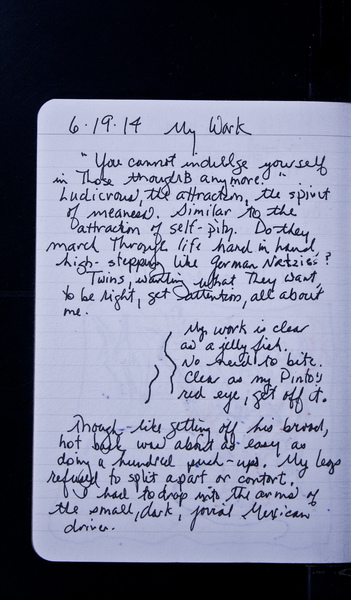 6.19.14 My Work
"You cannot indulge yourself
in those thoughts anymore."
Ludicrous, the attraction, the spirit
of meaness. Similar to the
attraction of self-pity. Do they
march through life hand in hand,
high-stepping like German Natzis?
Twins, wanting what they want,
to be right, get attention, all about
me.
My work is clear
as a jelly fish.
No need to bite.
Clear as my Pinto's
red eye, get off it.
Though-- like getting off his broad,
hot back was about as easy as
doing a hundred push-ups. My legs
refused to split apart or contort,
I had to drop into the arms of
the small, dark, jovial Mexican
driver.